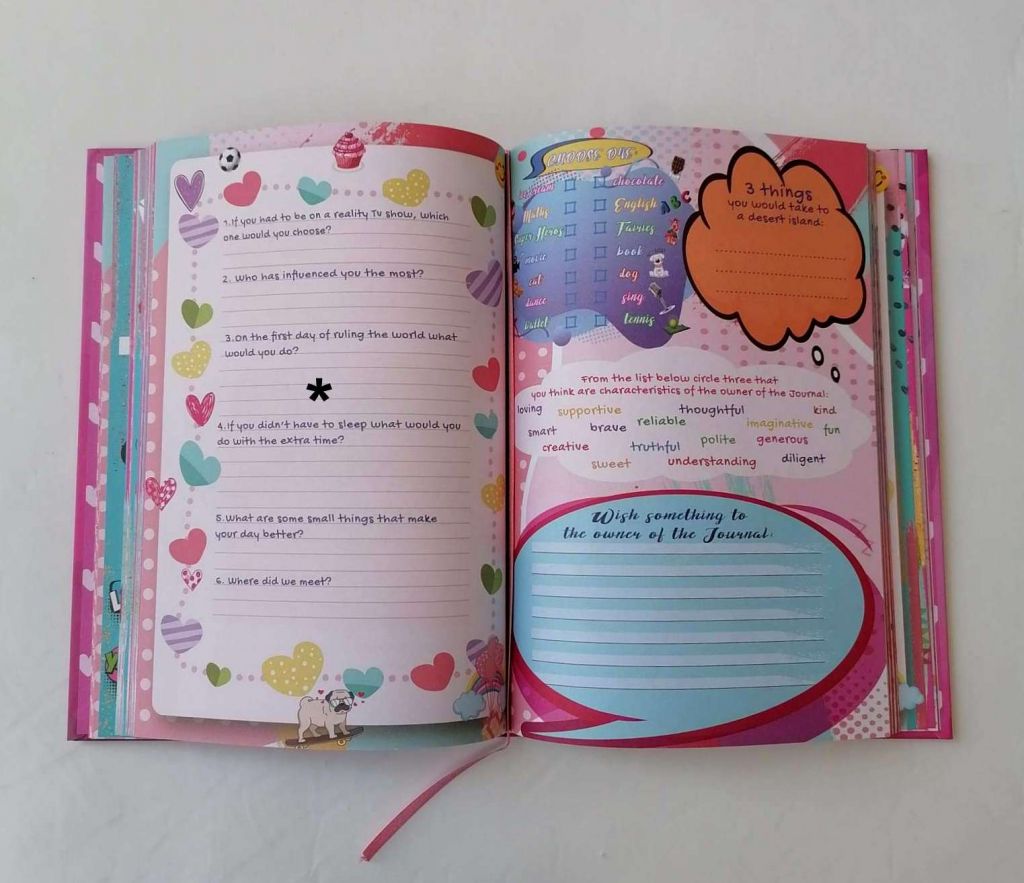 1.If you had to be on a reality TV show, which
one would you choose?
2. Who has influenced you the most?
3.On the first day of ruling the world what
would you do?
*
4.If you didn't have to sleep what would you
do with the extra time?
5.What are some small things that make
your day better?
6. Where did we meet?
CHOOSE ONE:
chocolate
Maths English
Super Heros Fairies
movie book
cat dog
dance sing
ballet tennis
ABC
3 things
you would take to
a desert island:
From the list below circle three that
you think are characteristics of the owner of the Journal:
loving supportive thoughtful kind
smart brave reliable imaginative fun
creative truthful polite generous
sweet understanding diligent
Wish something to
the owner of the Journal: